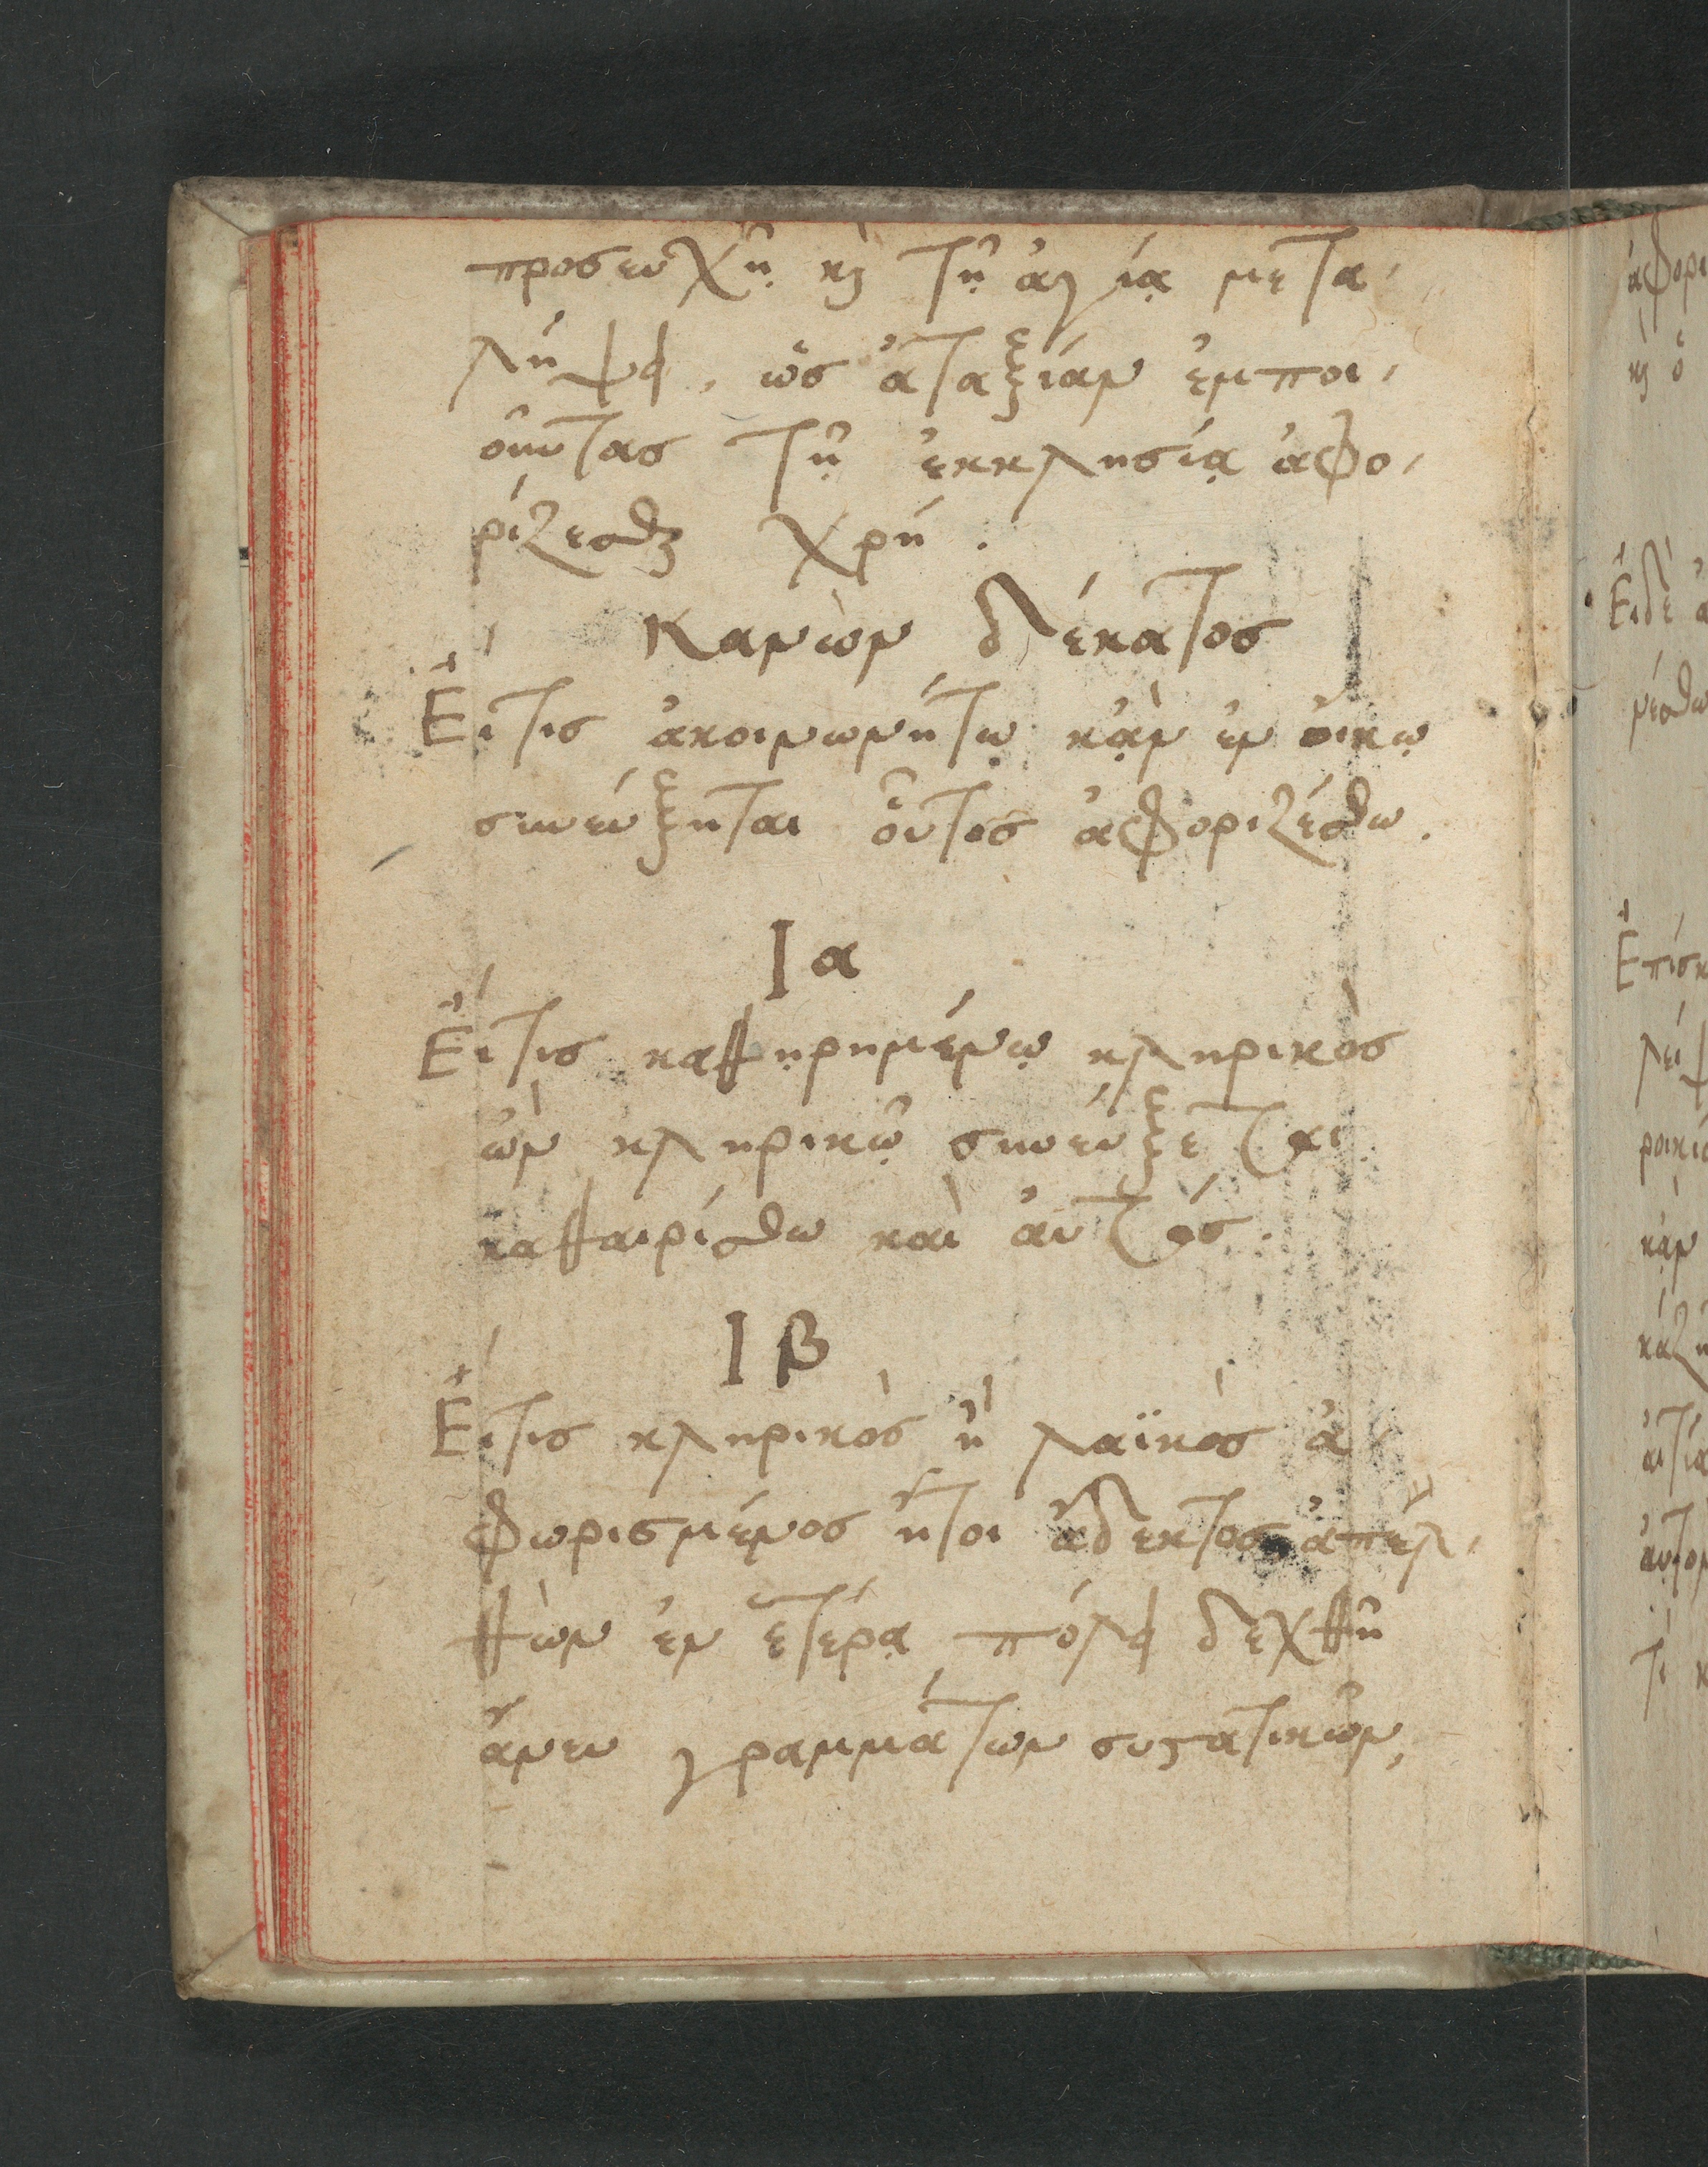 προσευχῇ κὶ τῇ ἁγίᾳ μετα,
λήψει, ὡς ἀταξίαν ἐμποι,
οῦντας τῇ ἐκκλησίᾳ ἀφο,
ρίζεσθαι χρή.
Κανὼν δέκατος
Ἔιτις ἀκοινωνήτῳ κᾂν ἐν οἴκῳ
συνεύξηται οὗτος ἀφοριζέσθω.
Ια
Ἔιτις καθῃρημένῳ κληρικὸς
ὢν κληρικῷ συνεύξεται
καθαιρίσθω καὶ ἀυτός.
Ιβ
Ἔιτις κληρικὸς ἢ λαϊκὸς ἀ,
φωρισμένος ἤτοι ἄδεκτος ἀπελ,
θὼν ἐν ἑτέρᾳ πόλει δεχθῇ
ἄνευ γραμμάτων συϛατικῶν,
ἀφορι
κὶ ὁ
Ἔιδὲ
νέσθω
Ἐπίσκ
κᾂν
ἀιτία